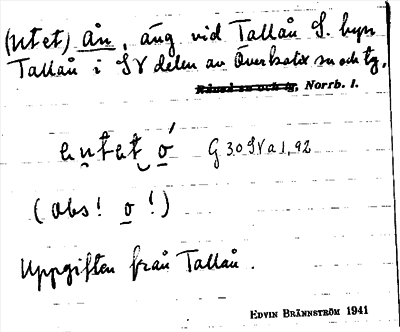 (Utet) ån, äng vid Tallån S. byn
Tallån i SV delen av Överkalix sn och tg,
Råneå sn och tg, Norrb. l.
entet ó G 30 SV a 1, 92
(obs! o!)
Uppgiften från Tallån.
EDVIN BRÄNNSTRÖM 1941